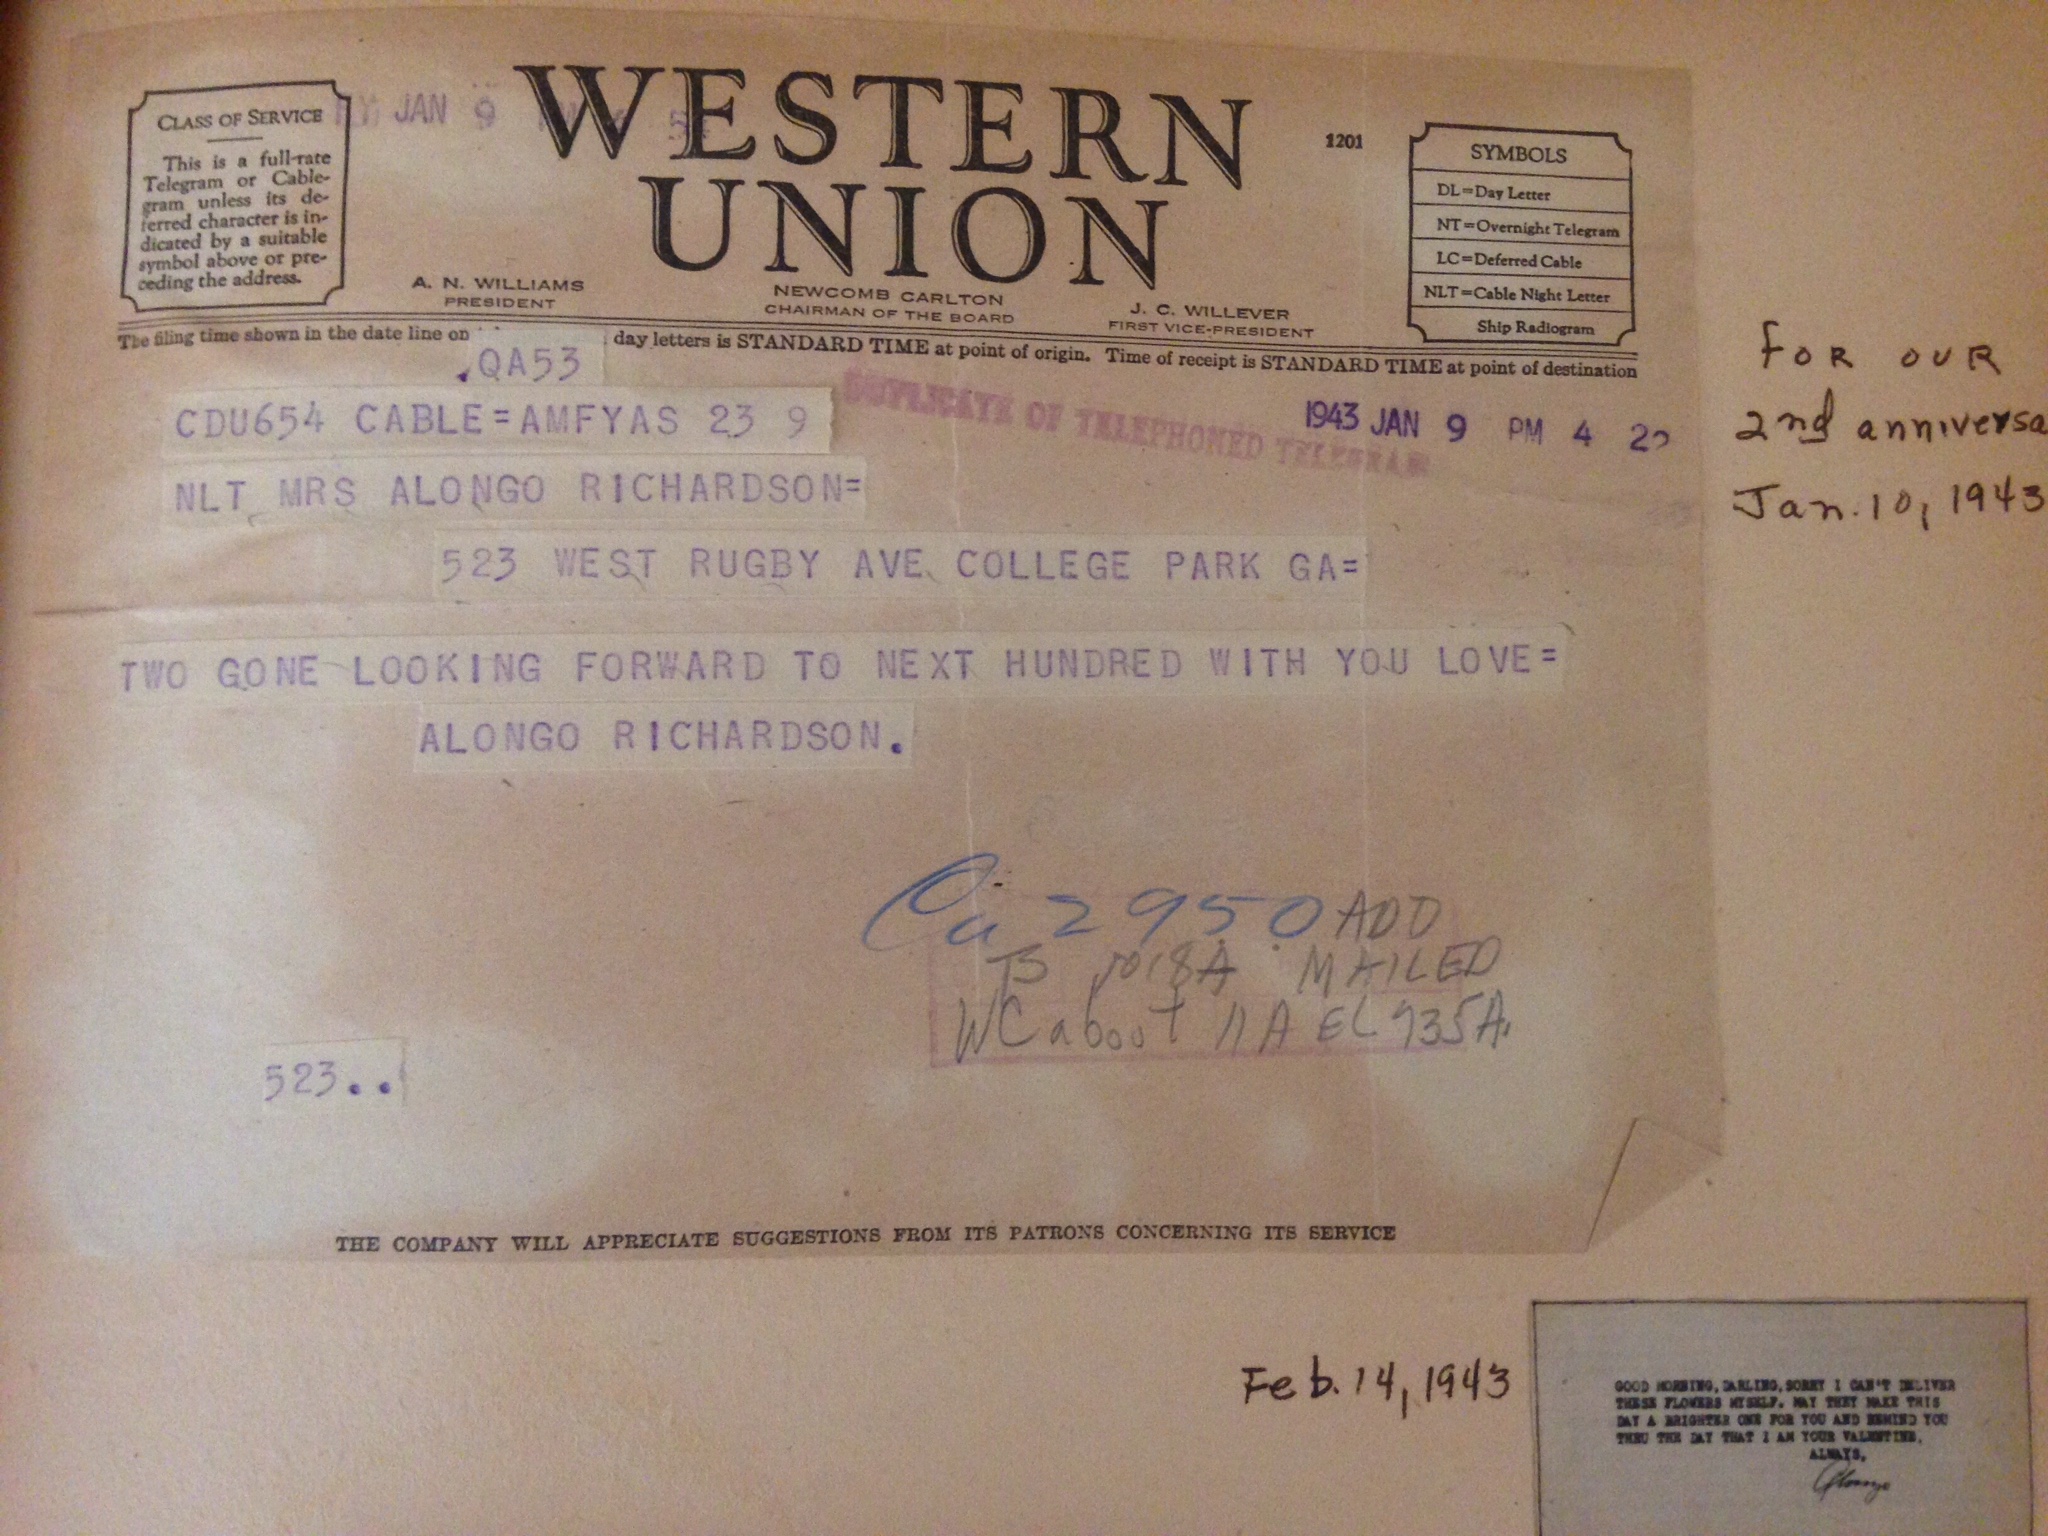 CLASS OF SERVICE
This is a full-rate
Telegram or Cable-
gram unless its de-
ferred character is in-
dicated by a suitable
symbol above or pre-
ceding the address.
JAN 9
WESTERN
UNION
1201
SYMBOLS
DL=Day Letter
NT=Overnight Telegram
LC=Deferred Cable
NLT=Cable Night Letter
Ship Radiogram
A. N. WILLIAMS
PRESIDENT
NEWCOMB CARLTON
CHAIRMAN OF THE BOARD
J. C. WILLEVER
FIRST VICE-PRESIDENT
The filing time shown in the date line on day letters is STANDARD TIME at point of origin. Time of receipt is STANDARD TIME at point of destination
.QA53
CDU654 CABLE=AMFYAS 23 9
DUPLICATE OF TELEPHONED TELEGRAM
1943 JAN 9 PM 4
NLT MRS ALONGO RICHARDSON=
523 WEST RUGBY AVE COLLEGE PARK GA=
TWO GONE LOOKING FORWARD TO NEXT HUNDRED WITH YOU LOVE=
ALONGO RICHARDSON.
2950 ADD
1018A MAILED
WC about 11A EL 935A.
523..
THE COMPANY WILL APPRECIATE SUGGESTIONS FROM ITS PATRONS CONCERNING ITS SERVICE
FOR OUR
2nd anniversa
Jan. 10, 1943
Feb. 14, 1943
GOOD MORNING, DARLING, SORRY I CAN'T DELIVER
THESE FLOWERS MYSELF. MAY THEY MAKE THIS
DAY A BRIGHTER ONE FOR YOU AND REMIND YOU
THRU THE DAY THAT I AM YOUR VALENTINE.
ALWAYS,
Alongo